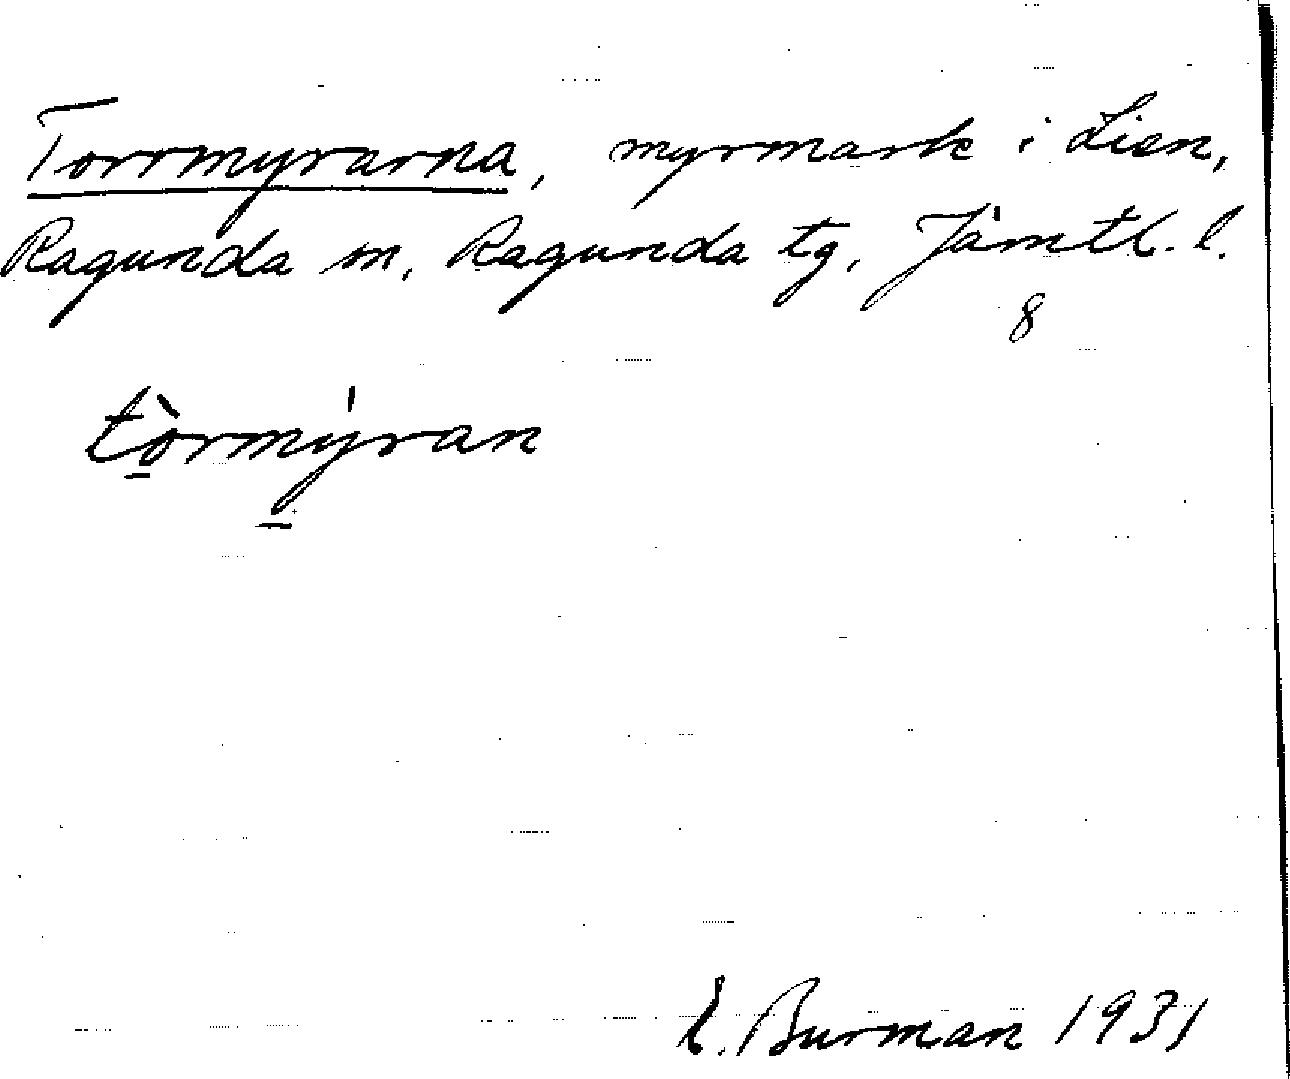 Torrmyrarna, myrmark i Lien,
Ragunda sn, Ragunda tg, Jämtl. l.
8
tòrmýran
E. Burman 1931